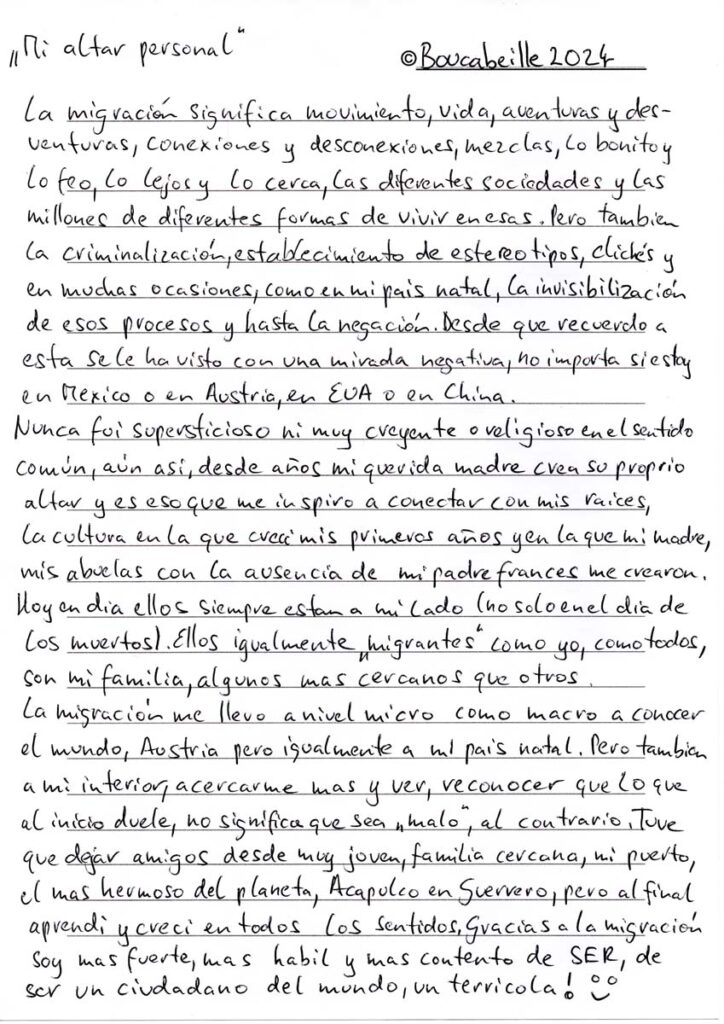 „Mi altar personal“
©Boucabeille 2024
La migración significa movimiento, vida, aventuras y des-
venturas, conexiones y desconexiones, mezclas, lo bonito y
lo feo, lo lejos y lo cerca, las diferentes sociedades y las
millones de diferentes formas de vivir en esas. Pero tambien
la criminalización, establecimiento de estereotipos, clichés y
en muchas ocasiones, como en mi pais natal, la invisibilización
de esos procesos y hasta la negación. Desde que recuerdo a
esta se le ha visto con una mirada negativa, no importa si estoy
en Mexico o en Austria, en EUA o en China.
Nunca fui supersticioso ni muy creyente o religioso en el sentido
común, aún así, desde años mi querida madre crea su proprio
altar y es eso que me inspiro a conectar con mis raices,
la cultura en la que crecí mis primeros años y en la que mi madre,
mis abuelas con la ausencia de mi padre frances me crearon.
Hoy en dia ellos siempre estan a mi lado (no solo en el dia de
los muertos). Ellos igualmente „migrantes“ como yo, como todos,
son mi familia, algunos mas cercanos que otros.
La migración me llevo a nivel micro como macro a conocer
el mundo, Austria pero igualmente a mi pais natal. Pero tambien
a mi interior, acercarme mas y ver, reconocer que lo que
al inicio duele, no significa que sea „malo“, al contrario. Tuve
que dejar amigos desde muy joven, familia cercana, mi puerto,
el mas hermoso del planeta, Acapulco en Guerrero, pero al final
aprendi y creci en todos los sentidos. Gracias a la migración
soy mas fuerte, mas habil y mas contento de SER, de
ser un ciudadano del mundo, un terricola!